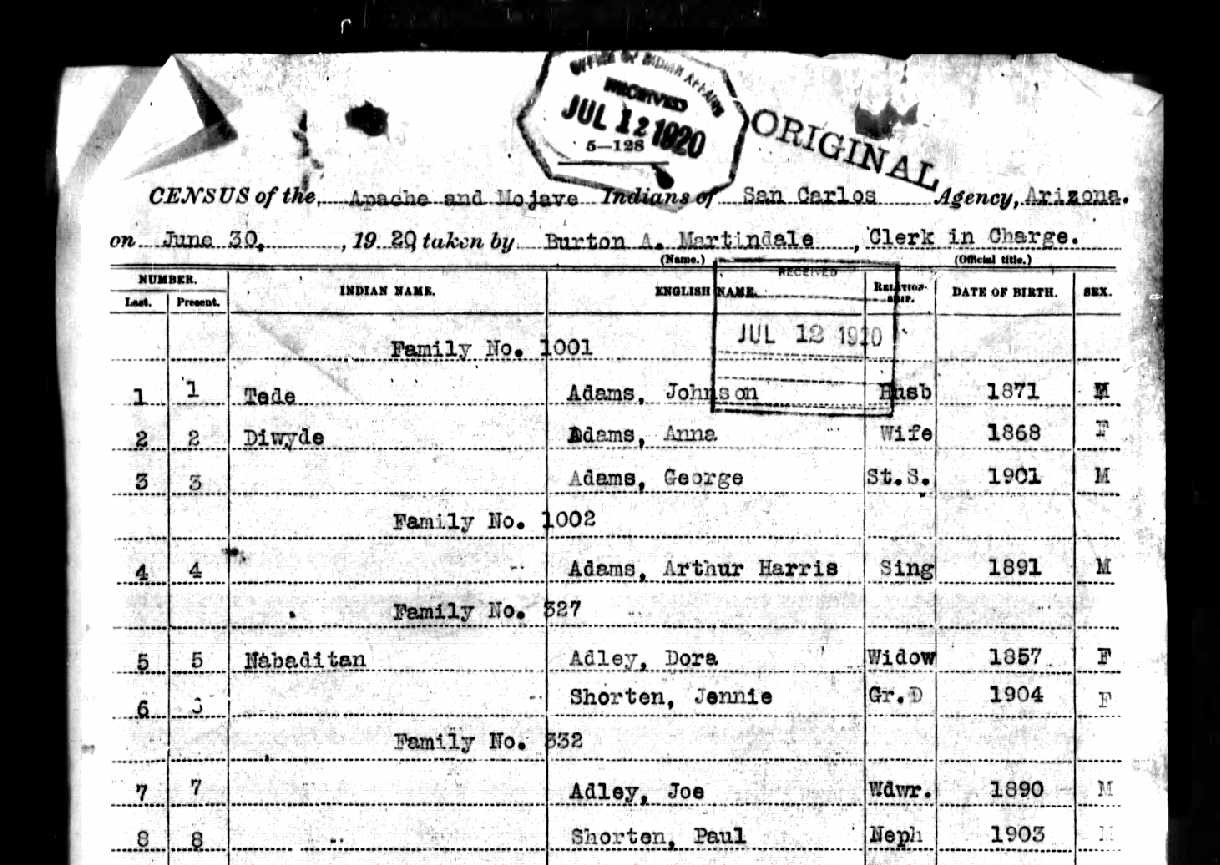 OFFICE OF INDIAN AFFAIRS
RECEIVED
JUL 12 1920
5—128
ORIGINAL
CENSUS of the Apache and Mojave Indians of San Carlos Agency, Arizona.
on June 30, , 1920 taken by Burton A. Martindale , Clerk in Charge.
(Name.) (Official title.)
NUMBER. INDIAN NAME. ENGLISH NAME. RELATION-SHIP. DATE OF BIRTH. SEX.
Last. Present.
RECEIVED
JUL 12 1920
Family No. 1001
1 1 Tede Adams, Johnson Husb 1871 M
2 2 Diwyde Adams, Anna Wife 1868 F
3 3 Adams, George St.S. 1901 M
Family No. 1002
4 4 Adams, Arthur Harris Sing 1891 M
Family No. 327
5 5 Nabaditan Adley, Dora Widow 1857 F
6 Shorten, Jennie Gr.D 1904 F
Family No. 332
7 7 Adley, Joe Wdwr. 1890 M
8 8 Shorten, Paul Neph 1903